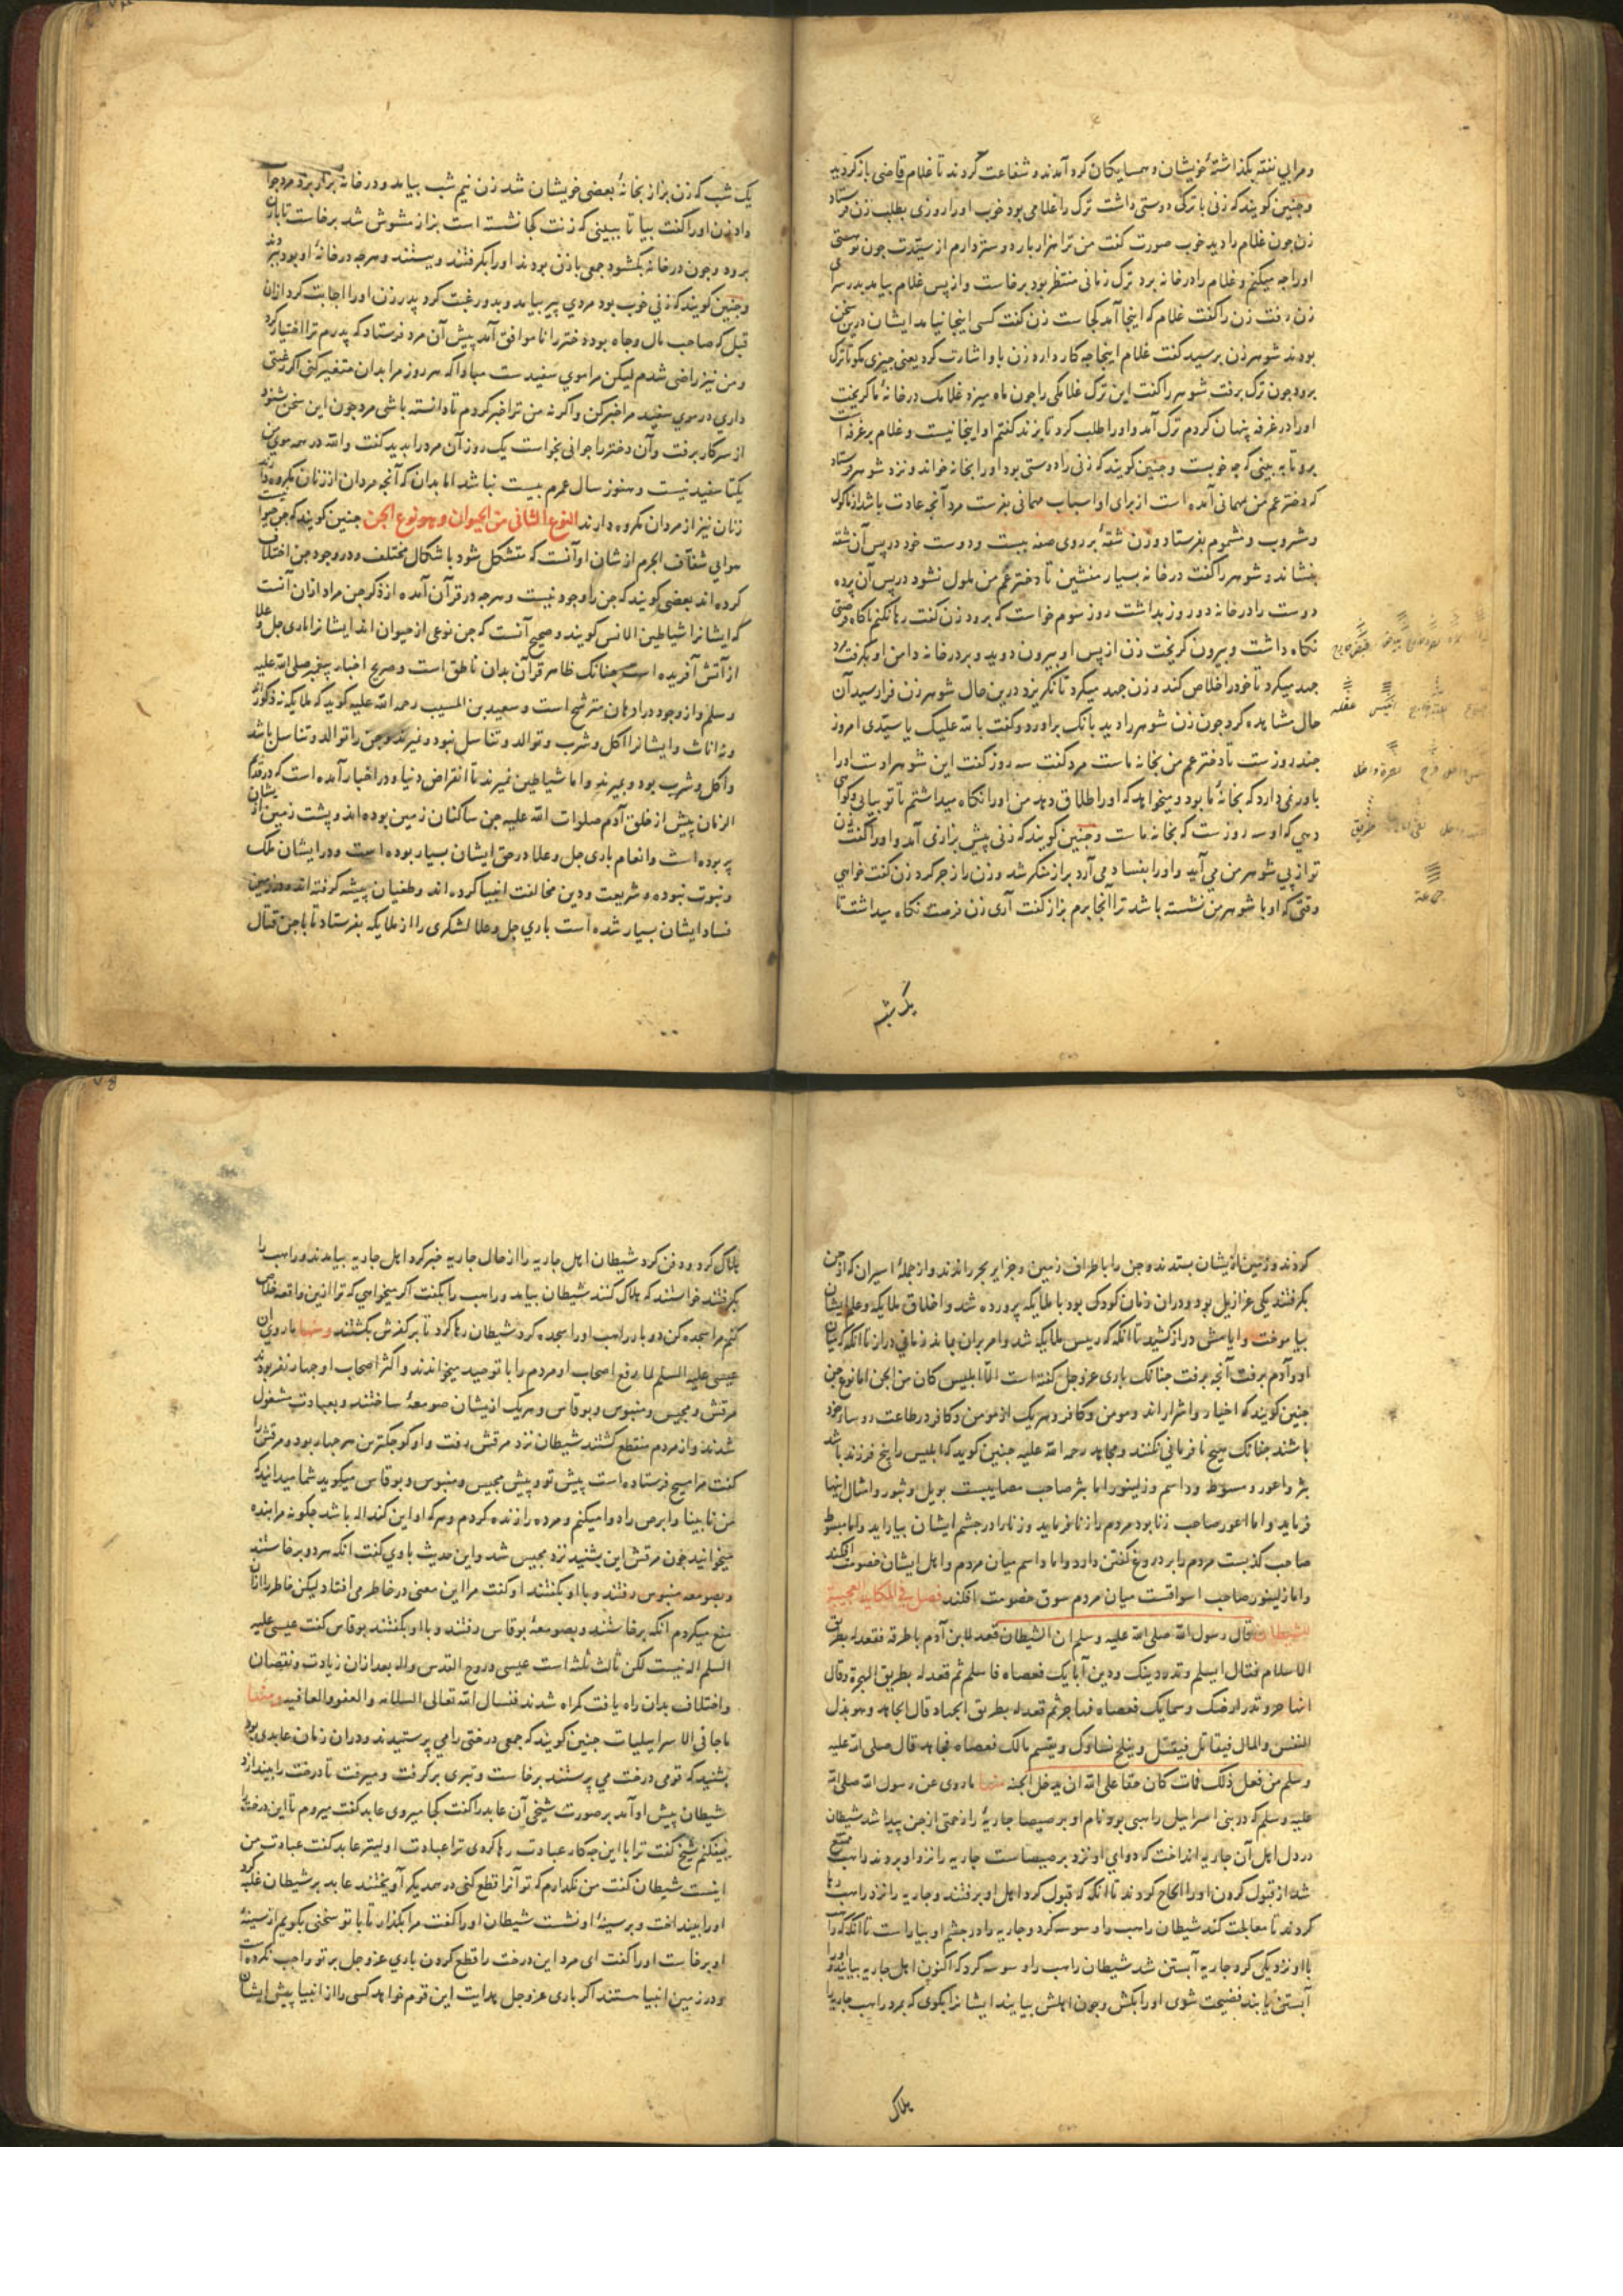 و مرا بی نفقه بگذاشتهٔ خویشان و همسایکان کرد آمدند و شفاعت کردند تا غلام قاضی باز کردید
و چنین کویند که زنی با ترک دوستی داشت ترک را غلامی بود خوب اورا روزی بطلب زن فرستاد
زن چون غلام را دید خوب صورت کفت من ترا هزار بار دوستر دارم از سیدت چون تو هستی
اورا چه میکنم و غلام را در خانه برد ترک زمانی منتظر بود برخاست و از پس غلام بیامد بدر سرای
زن رفت زن را کفت غلام که اینجا آمد کجاست زن کفت کسی اینجا نیامد ایشان درین سخن
بودند شوهر زن برسید کفت غلام اینجا چه کار دارد زن باو اشارت کرد یعنی چیزی مکو تا ترک
برود چون ترک برفت شوهر را کفت این ترک غلامکی را چون ماه میزد غلامک در خانهٔ ما کریخت
اورا در غرفه پنهان کردم ترک آمد و اورا طلب کرد تا بزند کفتم او اینجا نیست و غلام بر غرفه است
برو تا ببینی که چه خوبست و چنین کویند که زنی را دوستی بود اورا بخانه خواند و نزد شوهر فرستاد
که دختر عم من مهمانی آمده است از برای او اسباب مهمانی بفرست مرد آنچه عادت باشد از ماکول
و مشروب و مشموم بفرستاد و زن شقهٔ بر روی صفه ببست و دوست خود در پس آن شقه
بنشاند و شوهر را کفت در خانه بسیار منشین تا دختر عم من ملول نشود در پس آن پرده
دوست را در خانه دو روز بداشت روز سوم خواست که برود زن کفت رها نکنم ناکاه فرصتی
نکاه داشت و بیرون کریخت زن از پس او بیرون دوید و بر در خانه دامن او بکرفت مرد
جهد میکرد تا خود را خلاص کند و زن جهد میکرد تا نکریزد درین حال شوهر زن فرا رسید آن
حال مشاهده کرد چون زن شوهر را دید بانک برآورد و کفت بالله علیک یا سیدی امروز
چند روزست تا دختر عم من بخانه ماست مرد کفت سه روز کفت این شوهر اوست اورا
باور نمی دارد که بخانهٔ ما بود و میخواهد که اورا طلاق دهد من اورا نکاه میداشتم تا تو بیائی و کواهی
دهی که او سه روزست که بخانه ماست و چنین کویند که زنی پیش بزازی آمد و اورا کفت زن
تو از پی شوهر من می آید و اورا بفساد می آرد بزاز منکر شد و زن را زجر کرد زن کفت خواهی
وقتی که او با شوهر من نشسته باشد ترا آنجا برم بزاز کفت آری زن فرصت نکاه میداشت تا
یک شب
عقله
جماعة
یک شب که زن بزاز بخانهٔ بعضی خویشان شد زن نیم شب بیامد و در خانه بزاز بزد مرد جواب
داد زن اورا کفت بیا تا ببینی که زنت کجا نشسته است بزاز مشوش شد برخاست تا با زن
برود و چون در خانه بکشود جمعی با زن بودند اورا بکرفتند و ببستند و هرچه در خانهٔ او بود ببردند
و چنین کویند که زنی خوب بود مردی پیر بیامد و بدو رغبت کرد پدر زن اورا اجابت کرد از آن
قبل که صاحب مال و جاه بود و دختر را ناموافق آمد پیش آن مرد فرستاد که پدرم ترا اختیار کرد
و من نیز راضی شدم لیکن مرا موی سفیدست مبادا که هر روز مرا بدان متغیر کنی اکر رغبتی
داری در موی سفید مرا خبر کن و اکر نه من ترا خبر کردم تا دانسته باشی مرد چون این سخن بشنود
از سر کار برفت و آن دختر را جوانی بخواست یک روز آن مرد را بدید کفت والله در همه موی من
یکتا سفید نیست و هنوز سال عمرم بیست نباشد اما بدان که آنچه مردان از زنان مکروه دارند
زنان نیز از مردان مکروه دارند النوع الثانی من الحیوان و هو نوع الجن چنین کویند که جن حیوانیست
هوایی شفاف الجرم از شان او آنست که متشکل شود باشکال مختلف و در وجود جن اختلاف
کرده اند بعضی کویند که جن را وجود نیست و هرچه در قرآن آمده از ذکر جن مراد از آن آنست
که ایشانرا شیاطین الانس کویند و صحیح آنست که جن نوعی از حیوان اند ایشانرا باری جل و علا
از آتش آفریده است چنانک ظاهر قرآن بدان ناطق است و صریح اخبار پیغمبر صلی الله علیه
وسلم و از وجود در اذهان مترشح است و سعید بن المسیب رحمه الله علیه کوید که ملایکه نه ذکورند
و نه اناث و ایشانرا اکل و شرب و توالد و تناسل نبود و نمیرند و جن را توالد و تناسل باشد
و اکل و شرب بود و بمیرند و اما شیاطین نمیرند تا انقراض دنیا و در اخبار آمده است که در قدیم
الزمان پیش از خلق آدم صلوات الله علیه جن ساکنان زمین بوده اند و پشت زمین از ایشان
پر بوده است و انعام باری جل و علا در حق ایشان بسیار بوده است و در ایشان ملک
و نبوت بوده و شریعت و دین مخالفت انبیا کرده اند و طغیان پیشه کرفته اند و در زمین
فساد ایشان بسیار شده است باری جل و علا لشکری را از ملایکه بفرستاد تا با جن قتال
کردند و زمین از ایشان بستدند و جن را باطراف زمین و جزایر بحر راندند و از جملهٔ اسیران که از جن
بکرفتند یکی عزازیل بود و در آن زمان کودک بود با ملایکه پرورده شد و اخلاق ملایکه و علم ایشان
بیاموخت و ایامش دراز کشید تا آنکه که رییس ملایکه شد و امر بر آن بماند زمانی دراز تا آنکه که میان
او و آدم برفت آنچه برفت چنانک باری عز و جل کفته است الا ابلیس کان من الجن اما نوع جن
چنین کویند که اخیار و اشرار اند و مومن و کافر و هریک از مومن و کافر در طاعت روساء خود
باشند چنانک هیچ نافرمانی نکنند و مجاهد رحمه الله علیه چنین کوید که ابلیس را پنج فرزند باشد
بثر و اعور و مسوط و داسم و زلنبور اما بثر صاحب مصایبست بویل و ثبور و امثال اینها
فرماید و اما اعور صاحب زنا بود مردم را زنا فرماید و زنا را در چشم ایشان بیاراید و اما مسوط
صاحب کذبست مردم را بر دروغ کفتن دارد و اما داسم میان مردم و اهل ایشان خصومت افکند
و اما زلنبور صاحب اسواقست میان مردم سوق خصومت افکند فصل فی المکاید العجیبة
للشیطان قال رسول الله صلی الله علیه وسلم ان الشیطان قعد لابن آدم باطرقه فقعد له بطریق
الاسلام فقال اتسلم وتذر دینک ودین آبایک فعصاه فاسلم ثم قعد له بطریق الهجرة وقال
اتهاجر وتدر ارضک وسمایک فعصاه فهاجر ثم قعد له بطریق الجهاد قال اتجاهد وهو بذل
النفس والمال فیقاتل فیقتل وینکح نساؤک ویقسم مالک فعصاه فجاهد قال صلی الله علیه
وسلم من فعل ذلک فمات کان حقا علی الله ان یدخل الجنه منها ما روی عن رسول الله صلی الله
علیه وسلم که در بنی اسراییل راهبی بود نام او برصیصا جاریهٔ را زحمتی از جن پیدا شد شیطان
در دل اهل آن جاریه انداخت که دوای او نزد برصیصاست جاریه را نزد او بردند راهب ممتنع
شد از قبول کردن اورا الحاح کردند تا آنکه که قبول کرد اهل او برفتند و جاریه را نزد راهب رها
کردند تا معالجت کند شیطان راهب را وسوسه کرد و جاریه را در چشم او بیاراست تا آنکه که راهب
با او نزدیکی کرد جاریه آبستن شد شیطان راهب را وسوسه کرد که اکنون اهل جاریه بیایند و اورا
آبستن یابند فضیحت شوی اورا بکش و چون اهلش بیایند ایشانرا بکوی که بمرد راهب جاریه را
هلاک
هلاک کرد و دفن کرد شیطان اهل جاریه را از حال جاریه خبر کرد اهل جاریه بیامدند و راهب را
بکرفتند خواستند که هلاک کنند شیطان بیامد و راهب را بکفت اکر میخواهی که ترا ازین واقعه خلاص
کنم مرا سجده کن دو بار راهب اورا سجده کرد شیطان رها کرد تا بر کفرش بکشتند ومنها ما روی ان
عیسی علیه السلم لما رفع اصحاب او مردم را با توحید میخواندند و اکثر اصحاب او چهار نفر بودند
مرقش و مجیس و منبوس و بوقاس و هریک از یشان صومعهٔ ساختند و بعبادت مشغول
شدند و از مردم منقطع کشتند شیطان نزد مرقش رفت و او کوچکترین هر چهار بود و مرقش را
کفت مرا مسیح فرستاده است پیش تو و پیش مجیس و منبوس و بوقاس میکوید شما میدانید که
من نابینا و ابرص را دوا میکنم و مرده را زنده کردم و هرکه او این کند اله باشد چکونه مرا بنده
میخوانید چون مرقش این بشنید نزد مجیس شد و این حدیث با وی کفت انکه هر دو برخاستند
و بصومعه منبوس رفتند و با او بکفتند او کفت مرا این معنی در خاطر می افتاد لیکن خاطر را از آن
منع میکردم انکه برخاستند و بصومعهٔ بوقاس رفتند و با او بکفتند بوقاس کفت عیسی علیه
السلم اله نیست لکن ثالث ثلثه است عیسی و روح القدس و اله بعد از آن زیادت و نقصان
و اختلاف بدان راه یافت کمراه شدند فنسال الله تعالی السلامه والعفو والعافیه ومنها
ما جا فی الاسراییلیات چنین کویند که جمعی درختی را می پرستیدند و در آن زمان عابدی بود
بشنید که قومی درخت می پرستند برخاست و تبری برکرفت و میرفت تا درخت را بیندازد
شیطان پیش او آمد بر صورت شیخی آن عابد را کفت کجا میروی عابد کفت میروم تا این درخت را
بیفکنم شیخ کفت ترا با این چه کار عبادت رها کردی ترا عبادت اولیتر عابد کفت عبادت من
اینست شیطان کفت من نکذارم که تو آنرا قطع کنی در همدیکر آویختند عابد بر شیطان غلبه کرد
اورا بینداخت و بر سینهٔ او نشست شیطان اورا کفت مرا بکذار تا با تو سخنی بکویم از سینهٔ
او برخاست اورا کفت ای مرد این درخت را قطع کردن باری عز و جل بر تو واجب نکرده است
و در زمین انبیا هستند اکر باری عز و جل هدایت این قوم خواهد کسی را از انبیا پیش ایشان